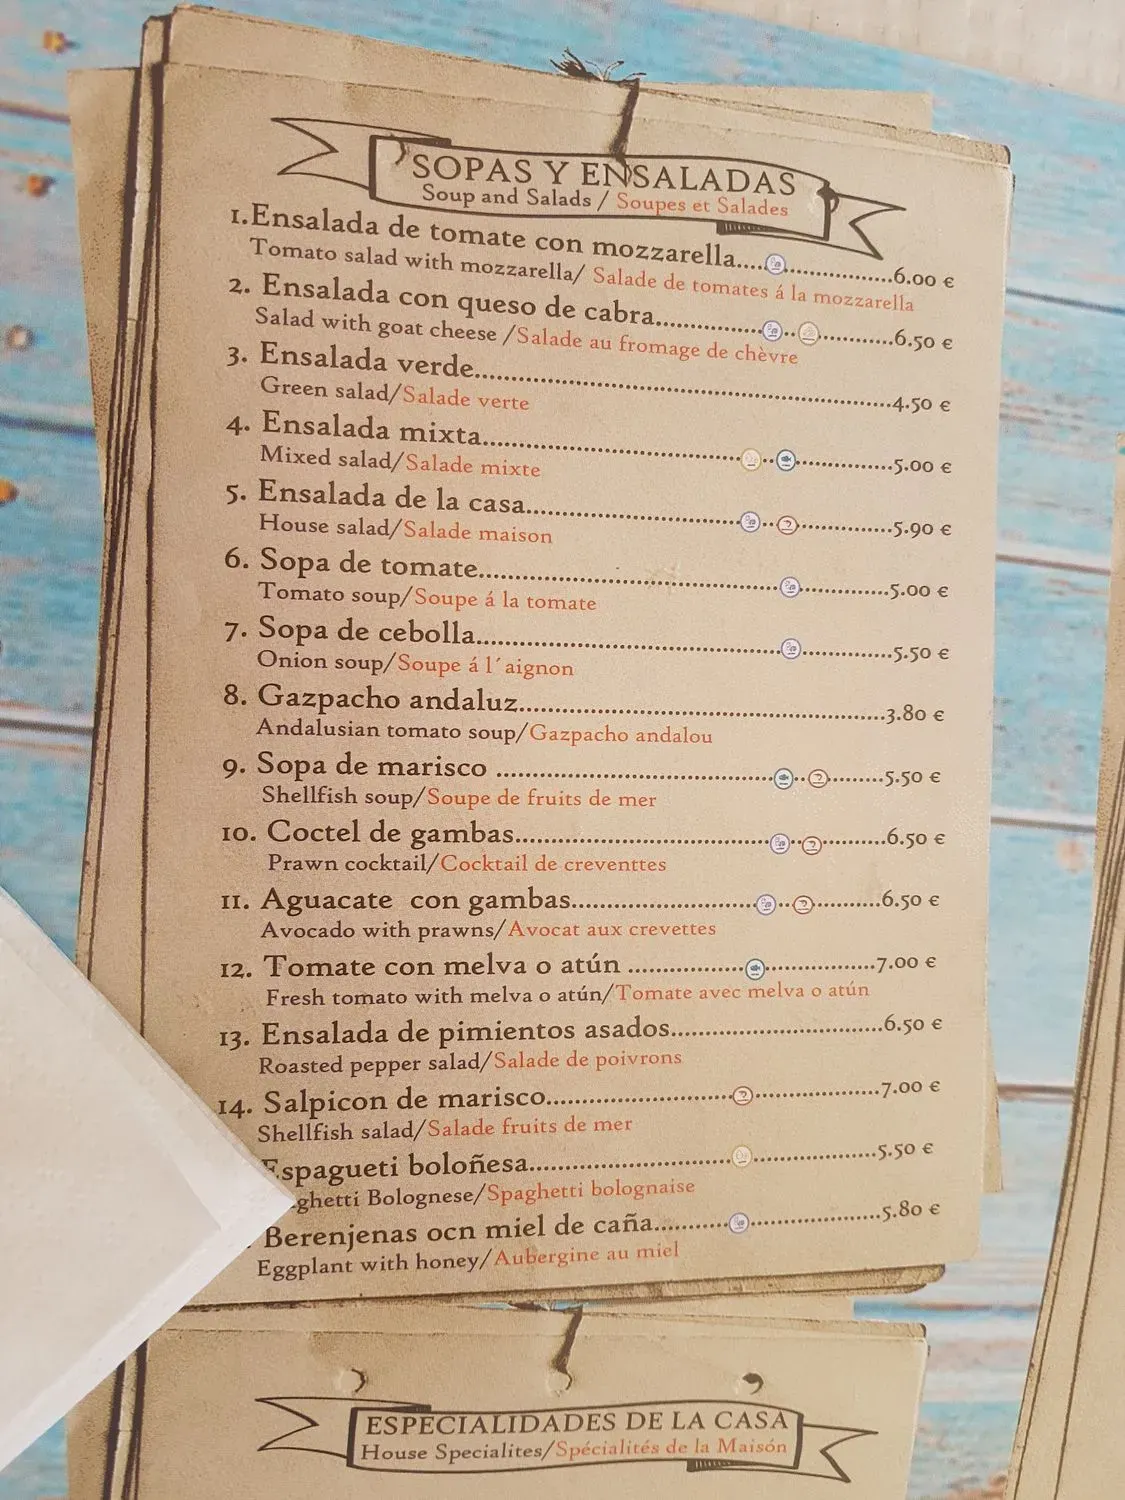 SOPAS Y ENSALADAS
Soup and Salads / Soupes et Salades
1.Ensalada de tomate con mozzarella....................6.00 €
Tomato salad with mozzarella/ Salade de tomates á la mozzarella
2. Ensalada con queso de cabra..............................6.50 €
Salad with goat cheese /Salade au fromage de chèvre
3. Ensalada verde............................................................4.50 €
Green salad/Salade verte
4. Ensalada mixta...........................................................5.00 €
Mixed salad/Salade mixte
5. Ensalada de la casa....................................................5.90 €
House salad/Salade maison
6. Sopa de tomate...........................................................5.00 €
Tomato soup/Soupe á la tomate
7. Sopa de cebolla............................................................5.50 €
Onion soup/Soupe á l´aignon
8. Gazpacho andaluz.....................................................3.80 €
Andalusian tomato soup/Gazpacho andalou
9. Sopa de marisco ........................................................5.50 €
Shellfish soup/Soupe de fruits de mer
10. Coctel de gambas......................................................6.50 €
Prawn cocktail/Cocktail de creventtes
11. Aguacate con gambas..............................................6.50 €
Avocado with prawns/Avocat aux crevettes
12. Tomate con melva o atún ....................................7.00 €
Fresh tomato with melva o atún/Tomate avec melva o atún
13. Ensalada de pimientos asados...............................6.50 €
Roasted pepper salad/Salade de poivrons
14. Salpicon de marisco................................................7.00 €
Shellfish salad/Salade fruits de mer
Espagueti boloñesa..................................................5.50 €
ghetti Bolognese/Spaghetti bolognaise
Berenjenas ocn miel de caña.................................5.80 €
Eggplant with honey/Aubergine au miel
ESPECIALIDADES DE LA CASA
House Specialites/Spécialités de la Maisón